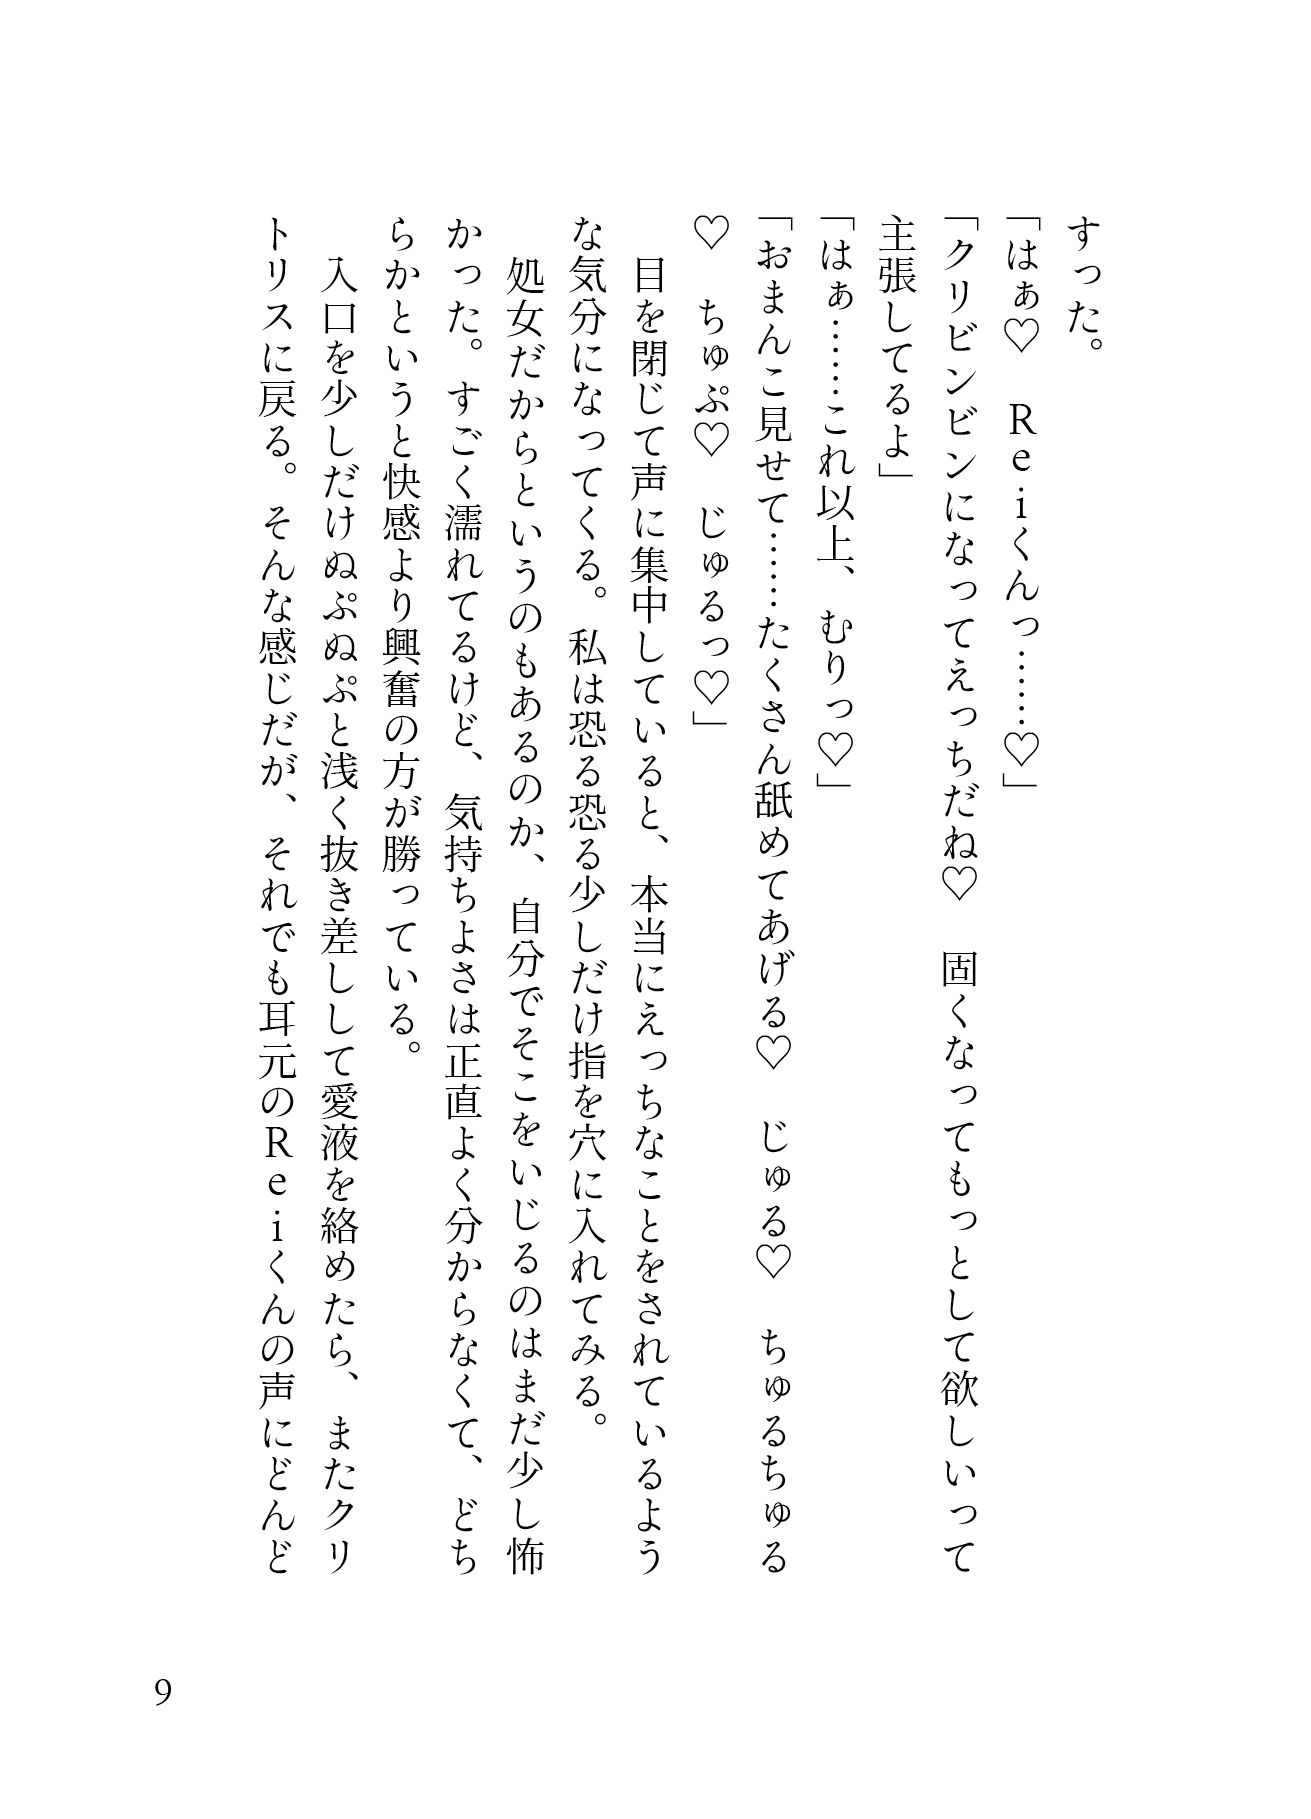 すった。
「はぁ♡　Ｒｅｉくんっ……♡」
「クリビンビンになってえっちだね♡　固くなってもっとして欲しいって
主張してるよ」
「はぁ……これ以上、むりっ♡」
「おまんこ見せて……たくさん舐めてあげる♡　じゅる♡　ちゅるちゅる
♡　ちゅぷ♡　じゅるっ♡」
　目を閉じて声に集中していると、本当にえっちなことをされているよう
な気分になってくる。私は恐る恐る少しだけ指を穴に入れてみる。
　処女だからというのもあるのか、自分でそこをいじるのはまだ少し怖
かった。すごく濡れてるけど、気持ちよさは正直よく分からなくて、どち
らかというと快感より興奮の方が勝っている。
　入口を少しだけぬぷぬぷと浅く抜き差しして愛液を絡めたら、またクリ
トリスに戻る。そんな感じだが、それでも耳元のＲｅｉくんの声にどんど
9